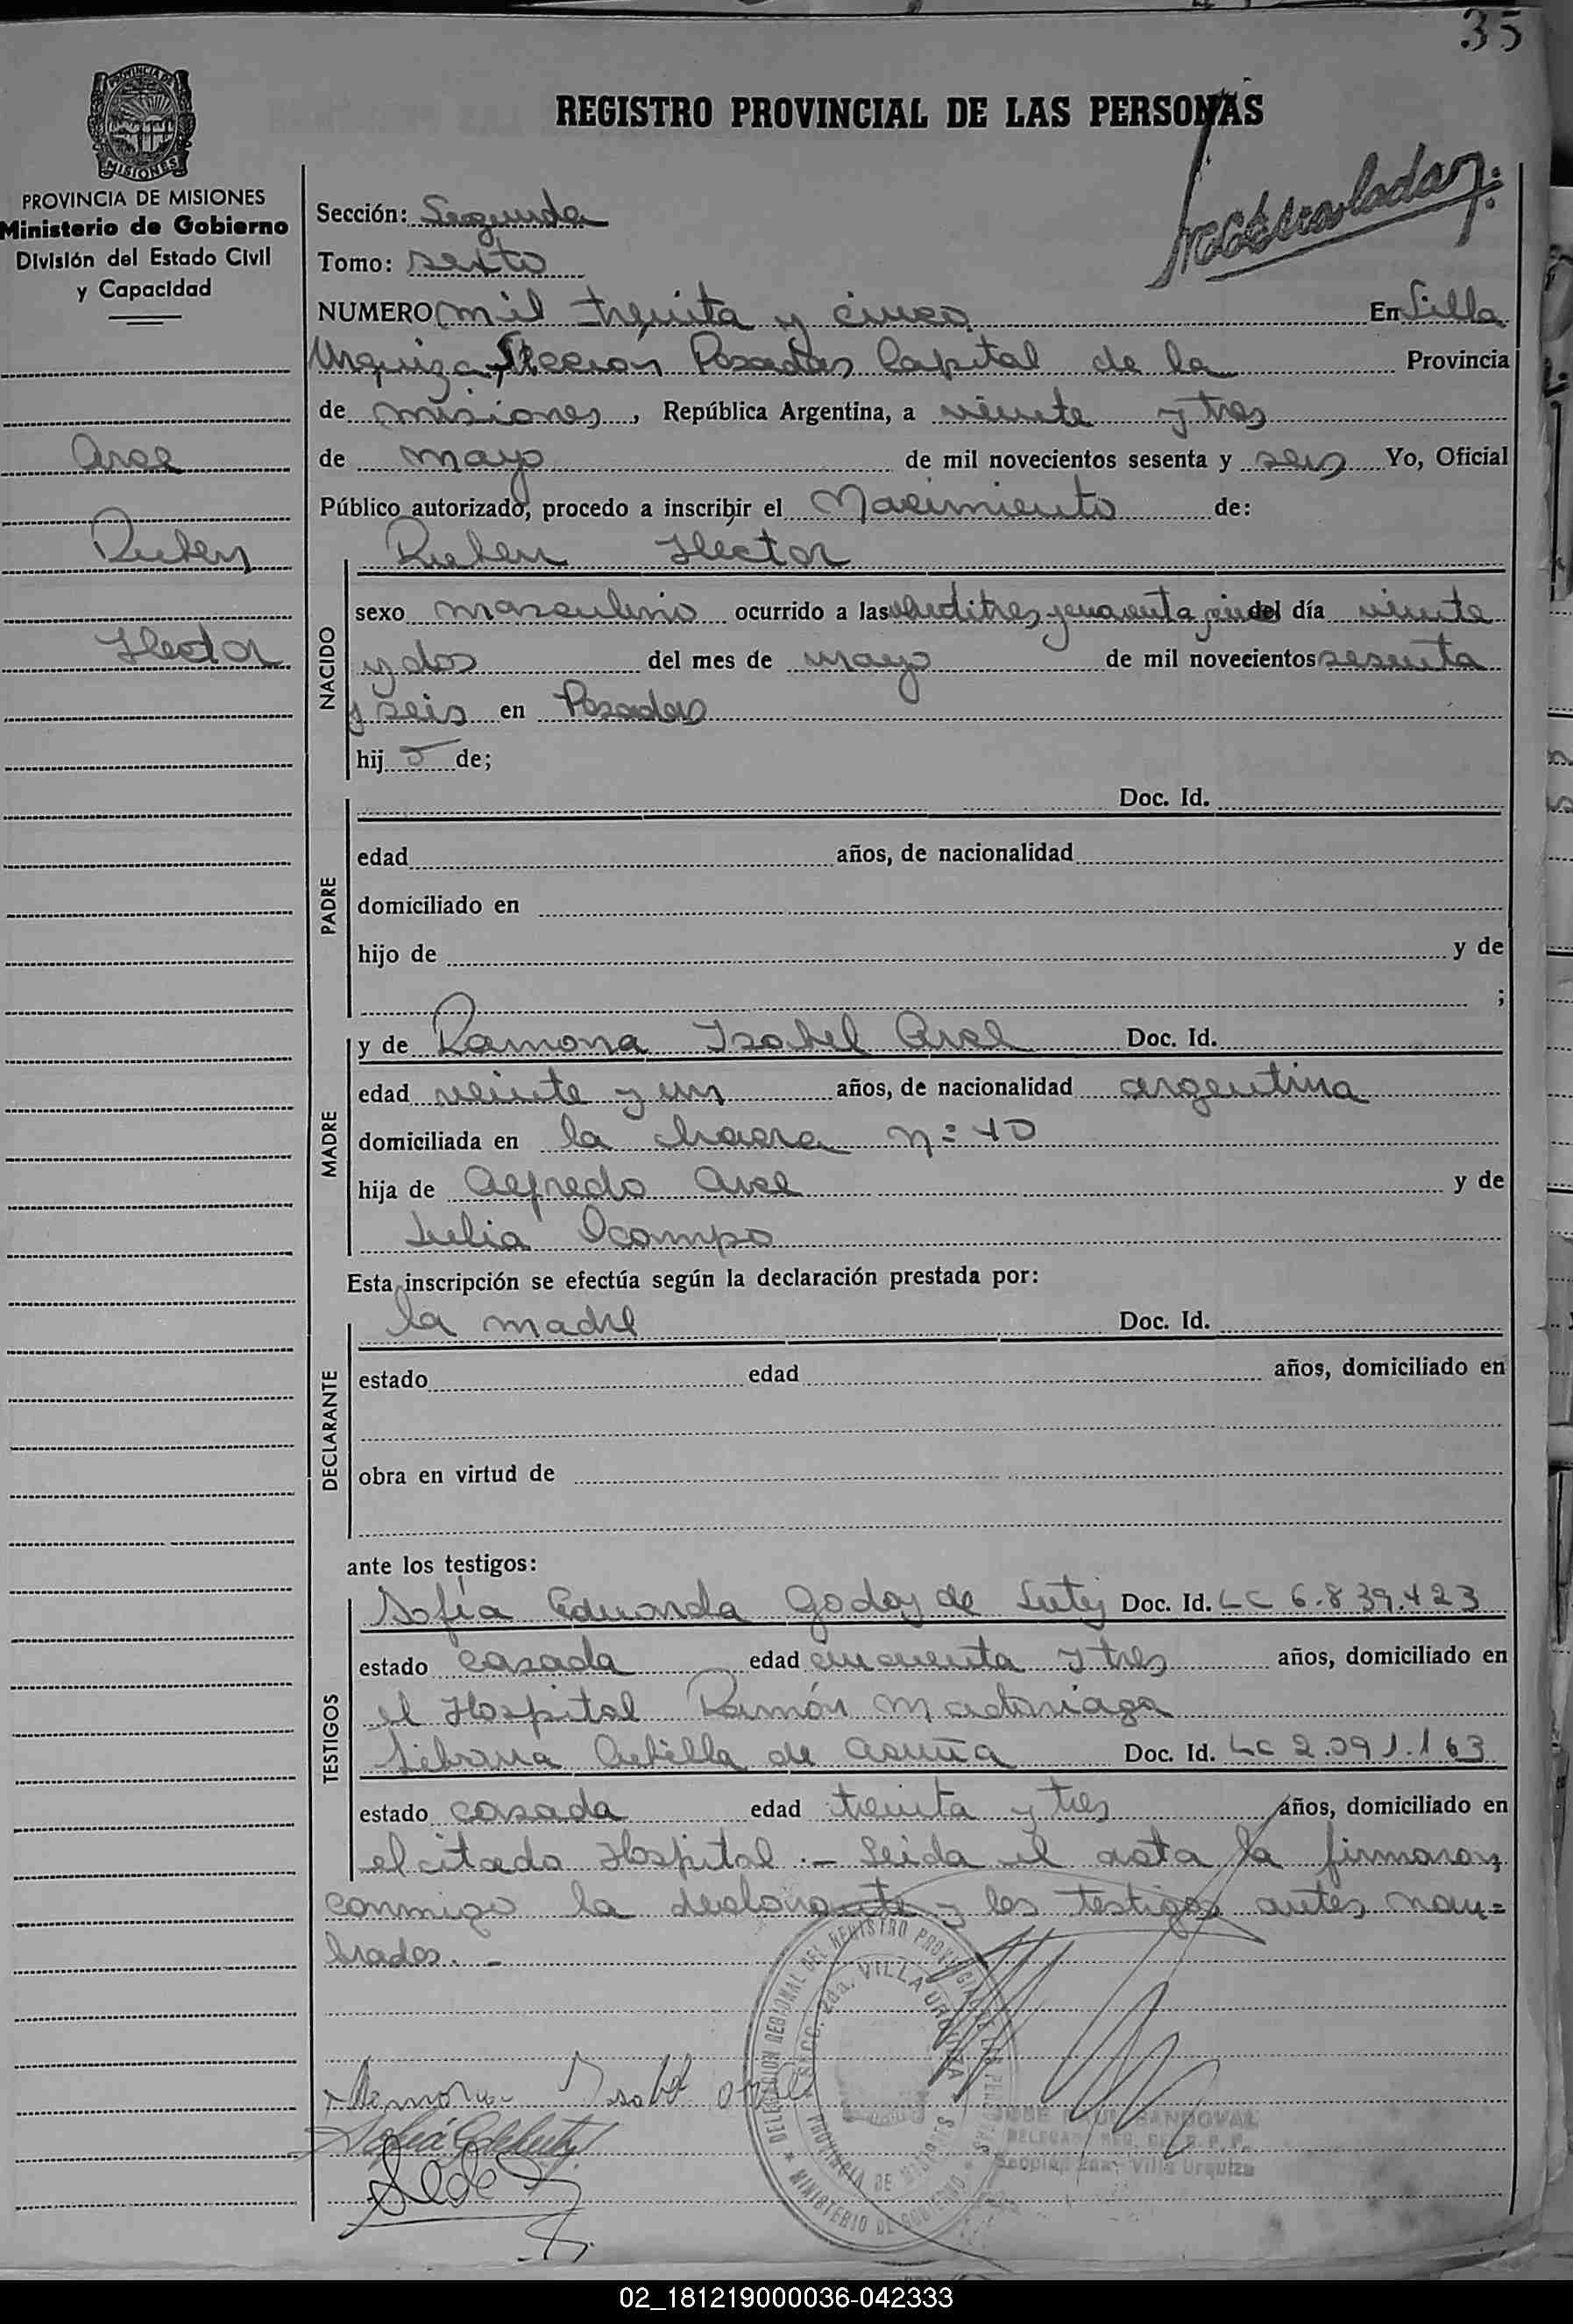 35
PROVINCIA DE
MISIONES
REGISTRO PROVINCIAL DE LAS PERSONAS
PROVINCIA DE MISIONES
Ministerio de Gobierno
División del Estado Civil
y Capacidad
Sección: Segunda
Tomo: sexto
NUMERO mil treinta y cinco En Villa
Urquiza, Sección Posadas Capital de la Provincia
de misiones, República Argentina, a veinte y tres
Arce
de mayo de mil novecientos sesenta y seis Yo, Oficial
Público autorizado, procedo a inscribir el Nacimiento de:
Ruben
Ruben Hector
NACIDO
sexo masculino ocurrido a las del día veinte
Hector
y dos del mes de mayo de mil novecientos sesenta
y seis en Posadas
hijo de;
PADRE
Doc. Id.
edad años, de nacionalidad
domiciliado en
hijo de y de
;
MADRE
y de Ramona Isabel Arce Doc. Id.
edad veinte y un años, de nacionalidad argentina
domiciliada en la chacra n=10
hija de Alfredo Arce y de
Julia Ocampo
Esta inscripción se efectúa según la declaración prestada por:
DECLARANTE
la madre Doc. Id.
estado edad años, domiciliado en
obra en virtud de
ante los testigos:
TESTIGOS
Sofía Eduarda Godoy de Doc. Id. LC 6.839.423
estado casada edad cincuenta y tres años, domiciliado en
el Hospital Ramón Madariaga
de Acuña Doc. Id. LC 2.091.163
estado casada edad treinta y tres años, domiciliado en
el citado Hospital.- Leida el acta la firmaron
conmigo la declarante y los testigos antes nom=
brados.-
DELEGACION REGIONAL DEL REGISTRO PROVINCIAL DE LAS PERSONAS
SECC. 2da. VILLA URQUIZA
PROVINCIA DE MISIONES
MINISTERIO DE GOBIERNO
Ramona Isabel Arce
JOSE RAUL SANDOVAL
DELEGADO REG. DEL R. P. P.
Sección 2da. Villa Urquiza
02_181219000036-042333